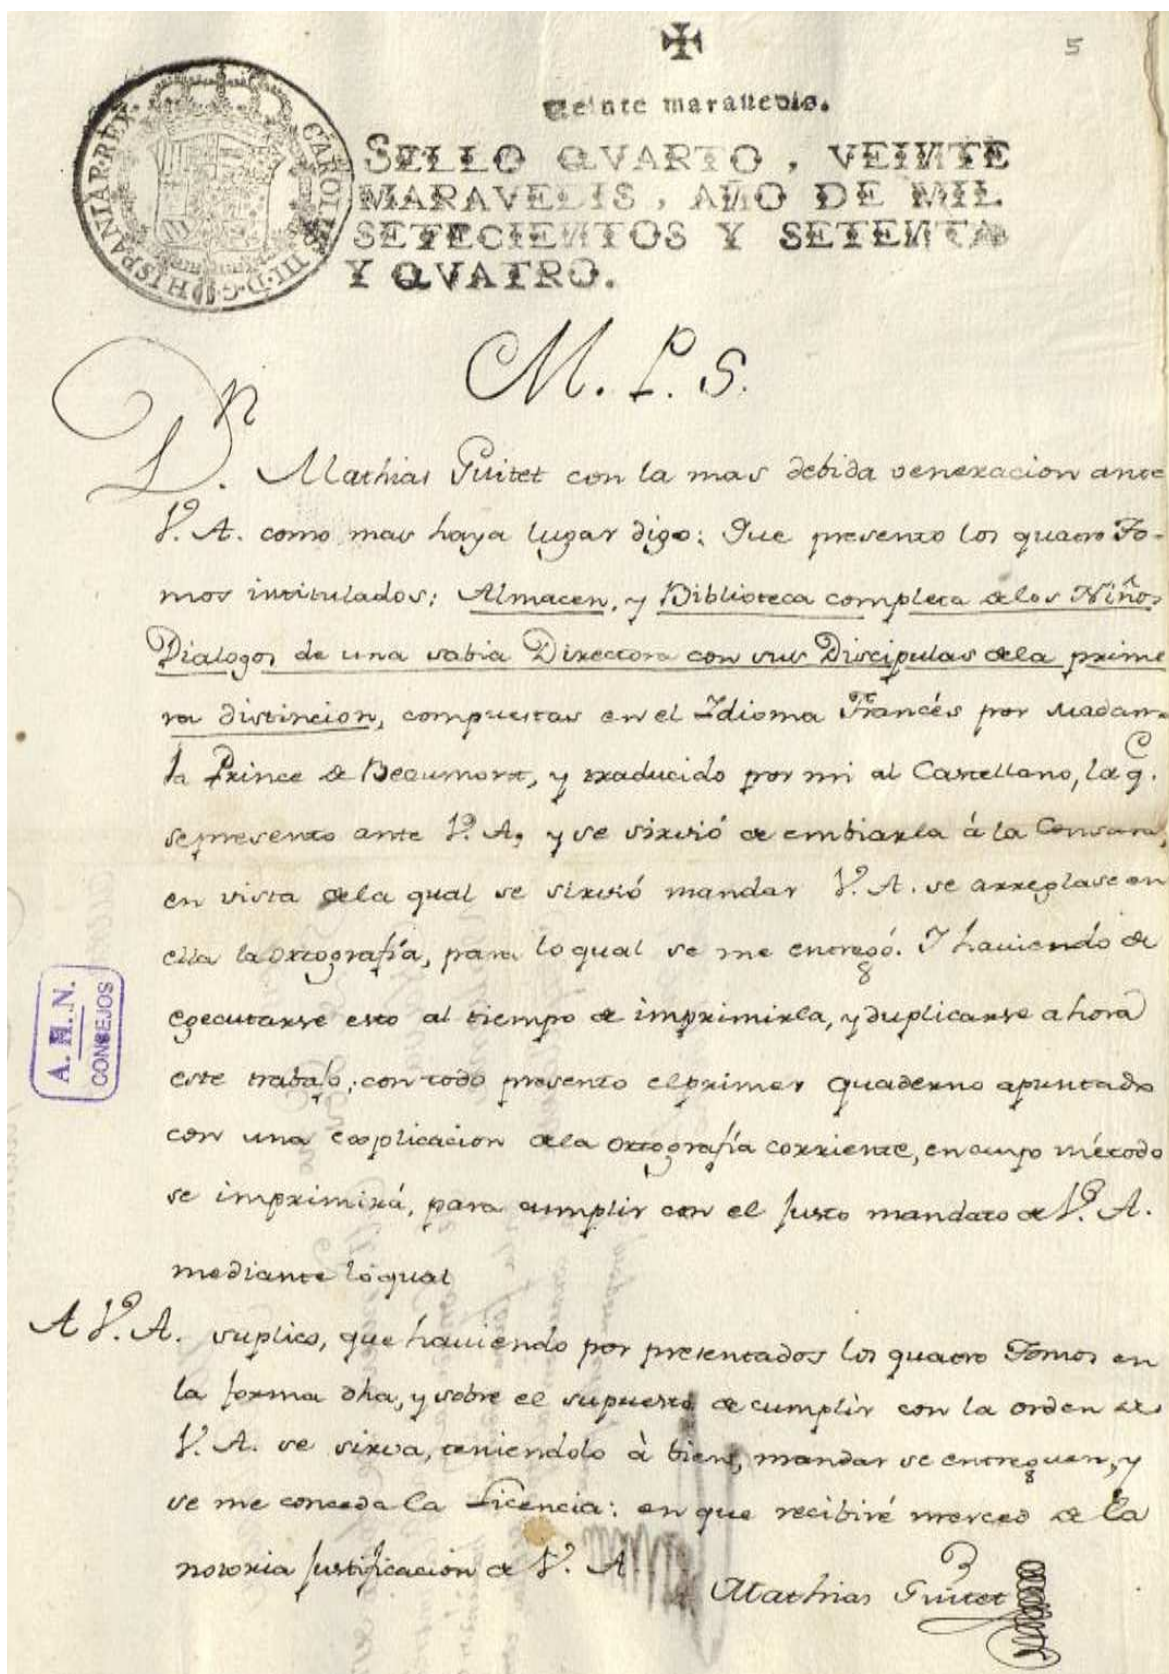 5
veinte marauedis.
SELLO QVARTO, VEINTE
MARAVEDIS, AÑO DE MIL
SETECIENTOS Y SETENTA
Y QVATRO.
CAROLUS III·D·G·HISPANIAR·REX
M. P. S.
Dn. Mathias Guitet con la mas debida veneracion ante
V. A. como mas haya lugar digo: Que presento los quatro To-
mos intitulados: Almacen, y Biblioteca completa delos Niños
Dialogos de una sabia Directora con sus Discipulas dela prime
ra distincion, compuestas en el Idioma Francés por Madam
la Prince de Beaumont, y traducido por mi al Castellano, la q.e
sepresento ante V. A, y se sirvió de embiarla à la Censura,
en vista dela qual se sirvió mandar V. A. se arreglase en
ella la ortografía, para lo qual se me entregó. I haviendo de
egecutarse esto al tiempo de imprimirla, y duplicarse ahora
este trabajo; con todo presento elprimer quaderno apuntado
con una explicacion dela ortografía corriente, en cuyo método
se imprimirá, para cumplir con el justo mandato de V. A.
mediante loqual
A V. A. suplico, que haviendo por presentados los quatro Tomos en
la forma dha, y sobre el supuesto de cumplir con la orden de
V. A. se sirva, teniendolo à bien, mandar se entreguen, y
se me conceda la Licencia: en que recibiré merced de la
notoria justificacion de V. A.
Mathias Guitet
A. H. N.
CONSEJOS